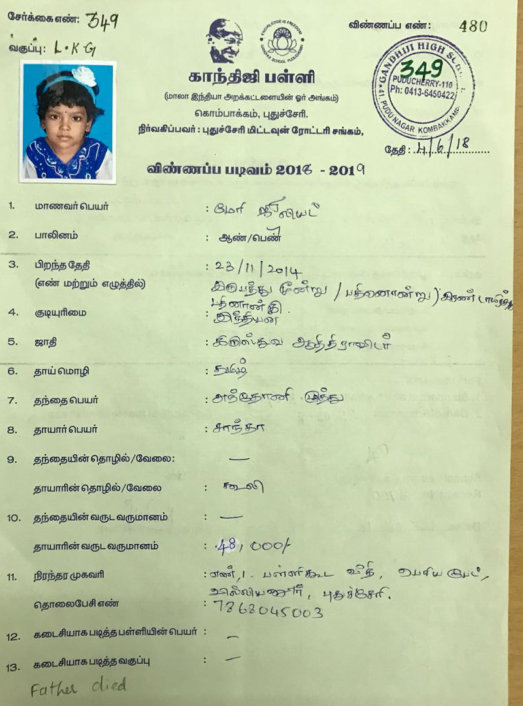 சேர்க்கை எண்: 349
வகுப்பு: L.K.G
விண்ணப்ப எண்: 480
காந்திஜி பள்ளி
(மாலா இந்தியா அறக்கட்டளையின் ஓர் அங்கம்)
கொம்பாக்கம், புதுச்சேரி.
நிர்வகிப்பவர் : புதுச்சேரி மிட்டவுன் ரோட்டரி சங்கம்,
GANDHIJI HIGH
349
PUDUCHERRY-110
Ph: 0413-6450422
PUDU NAGAR KOMBAKKAM
தேதி : 11/6/18
விண்ணப்ப படிவம் 2018 - 2019
1. மாணவர் பெயர் : மேரி ஜூலியட்
2. பாலினம் : ஆண்/பெண்
3. பிறந்த தேதி : 23/11/2014
(எண் மற்றும் எழுத்தில்) இருபத்து மூன்று / பதினொன்று / இரண்டாயிரத்து
பதினான்கு
4. குடியுரிமை : இந்தியன்
5. ஜாதி : கிறிஸ்துவ ஆதிதிராவிடர்
6. தாய் மொழி : தமிழ்
7. தந்தை பெயர் : அந்தோணி முத்து
8. தாயார் பெயர் : சாந்தா
9. தந்தையின் தொழில்/வேலை: —
தாயாரின் தொழில்/வேலை : கூலி
10. தந்தையின் வருட வருமானம் : —
தாயாரின் வருட வருமானம் : 48,000/-
11. நிரந்தர முகவரி : எண், 1. பள்ளிகூட வீதி, பேட்,
வில்லியனூர், புதுச்சேரி.
தொலைபேசி எண் : 7868045003
12. கடைசியாக படித்த பள்ளியின் பெயர் : —
13. கடைசியாக படித்த வகுப்பு : —
Father died